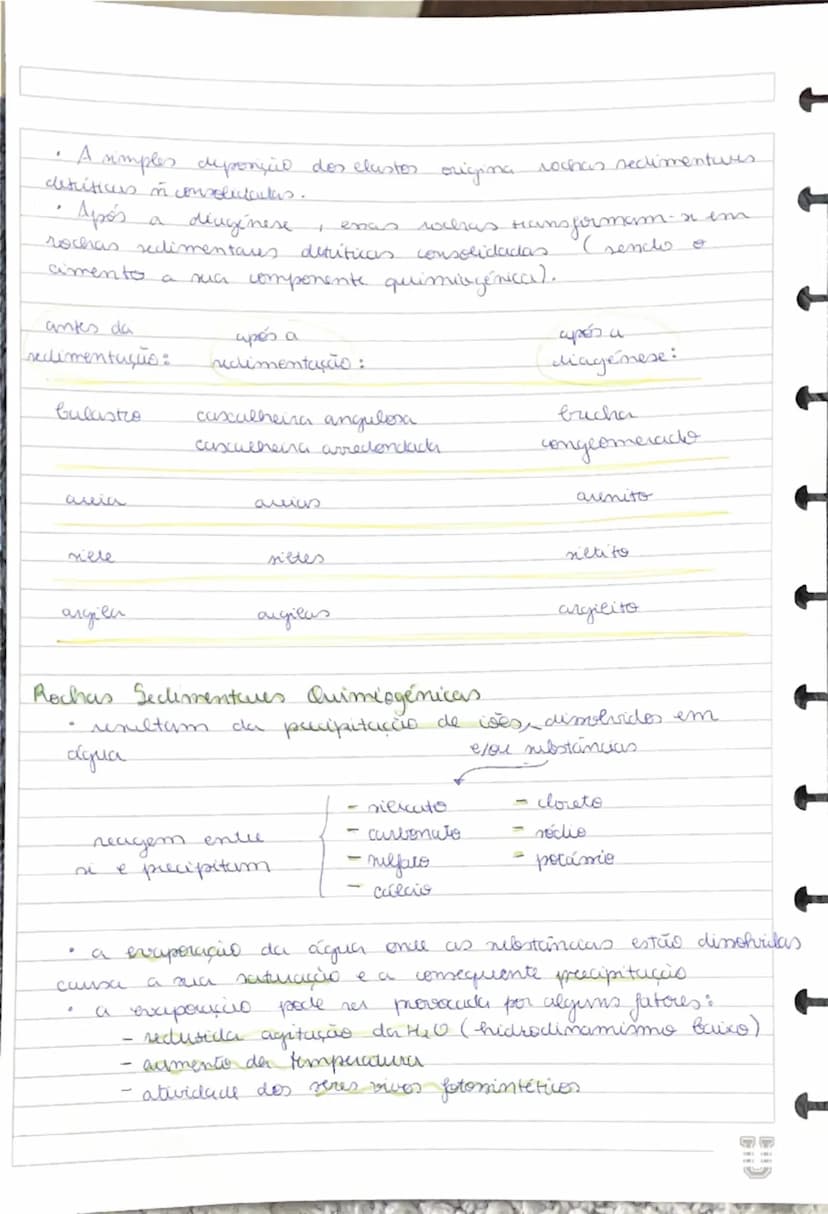 · A simples deposição dos clastos origina rochas sedimentares
detríticas ñ consolidadas.
· Após a diagénese, essas rochas transformam-se em
rochas sedimentares detríticas consolidadas (sendo o
cimento a sua componente quimiogénica).
antes da sedimentação: após a sedimentação: após a diagénese:
balastro cascalheira angulosa brecha
cascalheira arredondada conglomerado
areia areias arenito
silte siltes siltito
argila argilas argilito
Rochas Sedimentares Quimiogénicas
· resultam da precipitação de iões dissolvidos em
água e/ou substâncias
- silicato - cloreto
reagem entre - carbonato - sódio
si e precipitam - sulfato - potássio
- cálcio
· a evaporação da água onde as substâncias estão dissolvidas
causa a sua saturação e a consequente precipitação
· a evaporação pode ser provocada por alguns fatores:
- reduzida agitação da H₂O (hidrodinamismo baixo)
- aumento da temperatura
- atividade dos seres vivos fotossintéticos
U